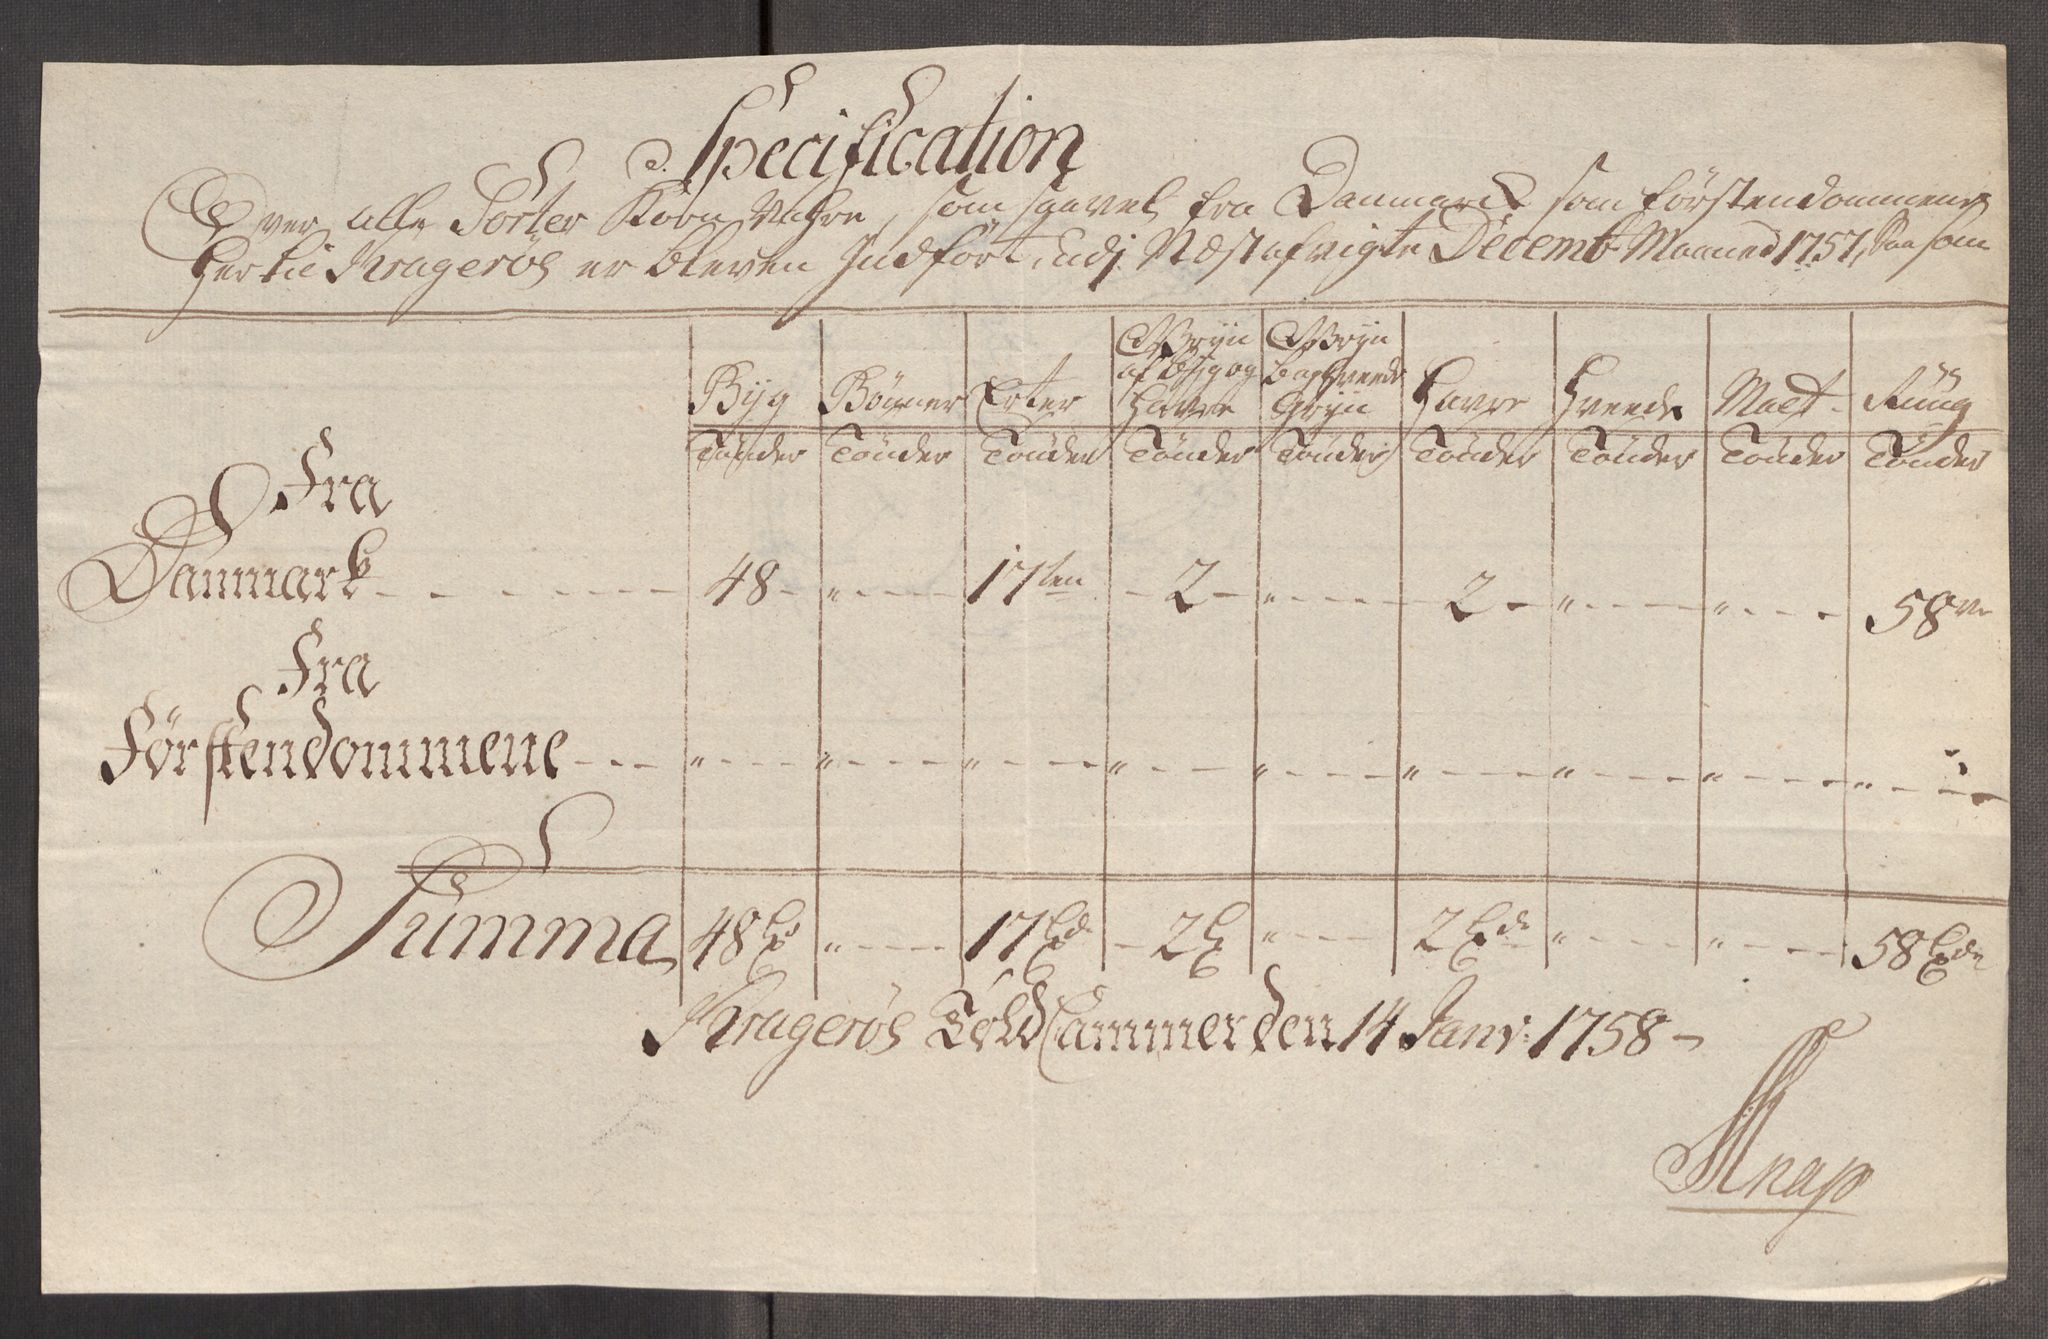 Specification
Over alle Sorter Korn Vahre, som saavel fra Danmarck som Förstendommene
her til Kragerøe er bleven Indført, udj Næstafvigte Decembr Maaned 1757, Saasom
Byg Bønner Erter Gryn af Byg og Havre Gryn Boghvede Gryn Havre Hvede Malt Rüüg
Tønder Tønder Tønder Tønder Tønder Tønder Tønder Tønder Tønder
Fra
Danmark - - - - - 48 - " - - - 17 - 2 - " - - - 2 - " - - - " - - - 58
Fra
Førstendommene - - - " - - - " - - - " - - - " - - - " - - - " - - - " - - - " - - - " - - -
Summa 48 " - - - 17 - 2 " - - - 2 " - - - " - - - 58
Kragerøe Told Cammer den 14 Janv: 1758 -
Knap